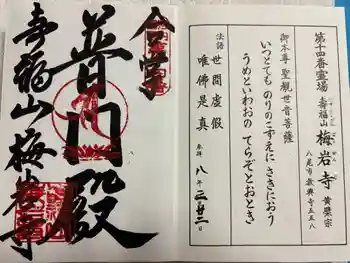 第十四番霊場
壽福山 梅岩寺 黄檗宗
八尾市教興寺五五八
御本尊 聖観世音菩薩
いつとても のりのこずえに さきにおう
うめといわおの てらぞとおとき
法語 世間虚假
唯佛是真
参拝 八年 二月廿二日
普門殿
壽福山梅岩寺